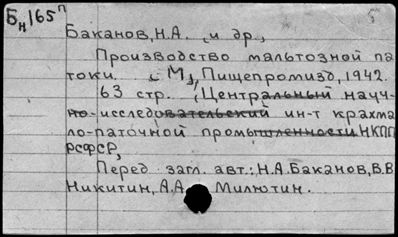 Бн165п
Баканов, Н.А. и др.,
Производство мальтозной па
токи. М., Пищепромизд, 1942.
63 стр. (Центральный науч-
но-исследовательский ин-т крахма
ло-паточной промышленности НКПП
РСФСР,
Перед загл. авт.: Н.А. Баканов, В.В
Никитин, А.А. Милютин.